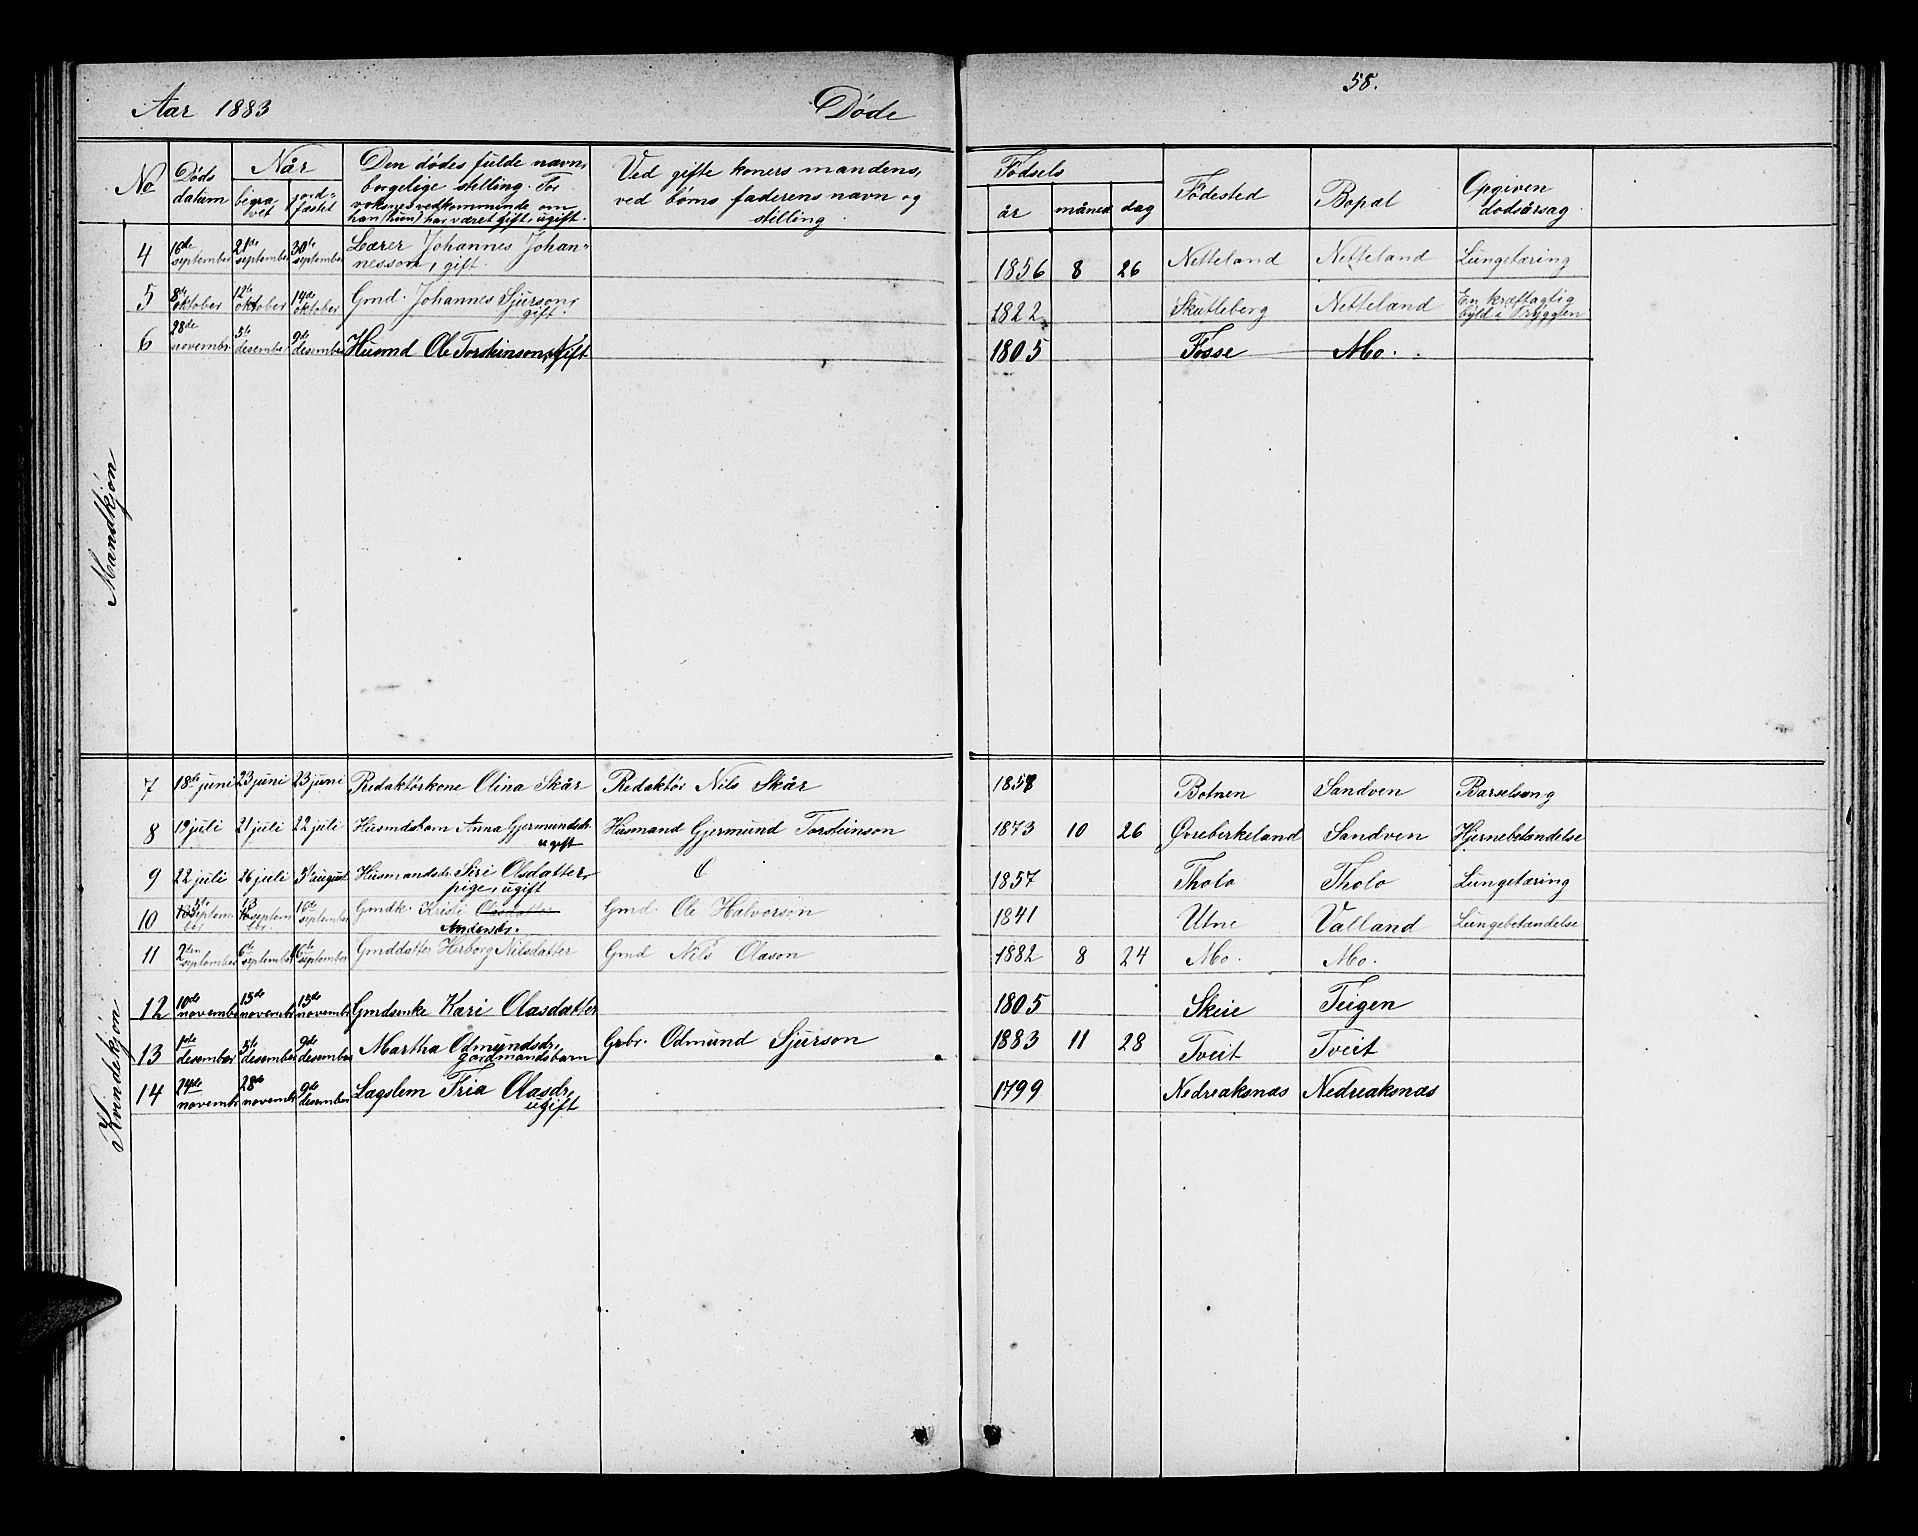 58.
Aar 1883 Døde
No Døds datum Når begravet jordfæstet Den dødes fulde navn, borgelige stilling. For voksnes vedkommende om han (hun) har været gift, ugift. Ved gifte koners mandens, ved børns faderens navn og stilling. Fødsels år måned dag Fødested Bopæl Opgiven dødsårsag
Mandkjøn
4 16de september 21de september 30te september Lærer Johannes Johannesson, gift. 1856 8 26 Netteland Netteland Lungetæring
5 8de oktober 12te oktober 14de oktober Gmd. Johannes Sjurson, gift. 1822 Skutleberg Netteland En kræftagtig byld i Ryggen
6 28de novembr. 5te desembr. 9de desember Husmd Ole Torsteinson, gift 1805 Fosse Mo.
Kvindekjøn
7 18de juni 23 juni 23 juni Redaktørkone Olina Skår Redaktør Nils Skår 1858 Botnen Sandven Barselseng
8 19 juli 21 juli 22 juli Husmdsbarn Anna Gjermundsdr. ugift Husmand Gjermund Torsteinson 1873 10 26 Øvreberkeland Sandven Hjernebetændelse
9 22 juli 26 juli 5te august Husmandsdr. Siri Olsdatter, pige, ugift 1857 Tholo Tholo Lungetæring
10 september 16de september Gmdk. Kristi Olasdatter Andersdr. Gmd. Ole Halvorson 1841 Utne Valland Lungebetændelse
11 2den september 6te september 16de september Gmddatter Herborg Nilsdatter Gmd Nils Olason 1882 8 24 Mo. Mo.
12 10de novembr 15de novembr 15de novembr Gmdsenke Kari Olasdatter 1805 Skeie Teigen
13 1ste desember 5te desember 9de desember Martha Odmundsdr, gardmandsbarn Grbr. Odmund Sjurson 1883 11 28 Tveit Tveit
14 24de novembr 28de novembr 9de desember Lagslem Fria Olasdr, ugift 1799 Nedreaksnæs Nedreaksnæs